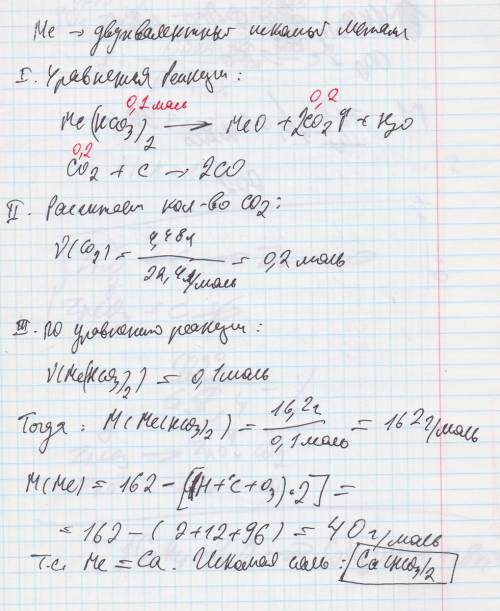 Me → двухвалентный искомый металл
I. Уравнения реакции:
0,1 моль 0,2
Me(HCO₃)₂ → MeO + 2CO₂↑ + H₂O
0,2
CO₂ + C → 2CO
II. Рассчитаем кол-во CO₂:
ν(CO₂) = 4,48л / 22,4л/моль = 0,2 моль
III. По уравнению реакции:
ν(Me(HCO₃)₂) = 0,1 моль
Тогда: M(Me(HCO₃)₂) = 16,2г / 0,1 моль = 162 г/моль
M(Me) = 162 - [(H+C+O₃)·2] =
= 162 - (2+12+96) = 40 г/моль
Т.е. Me = Ca. Искомая соль: Ca(HCO₃)₂